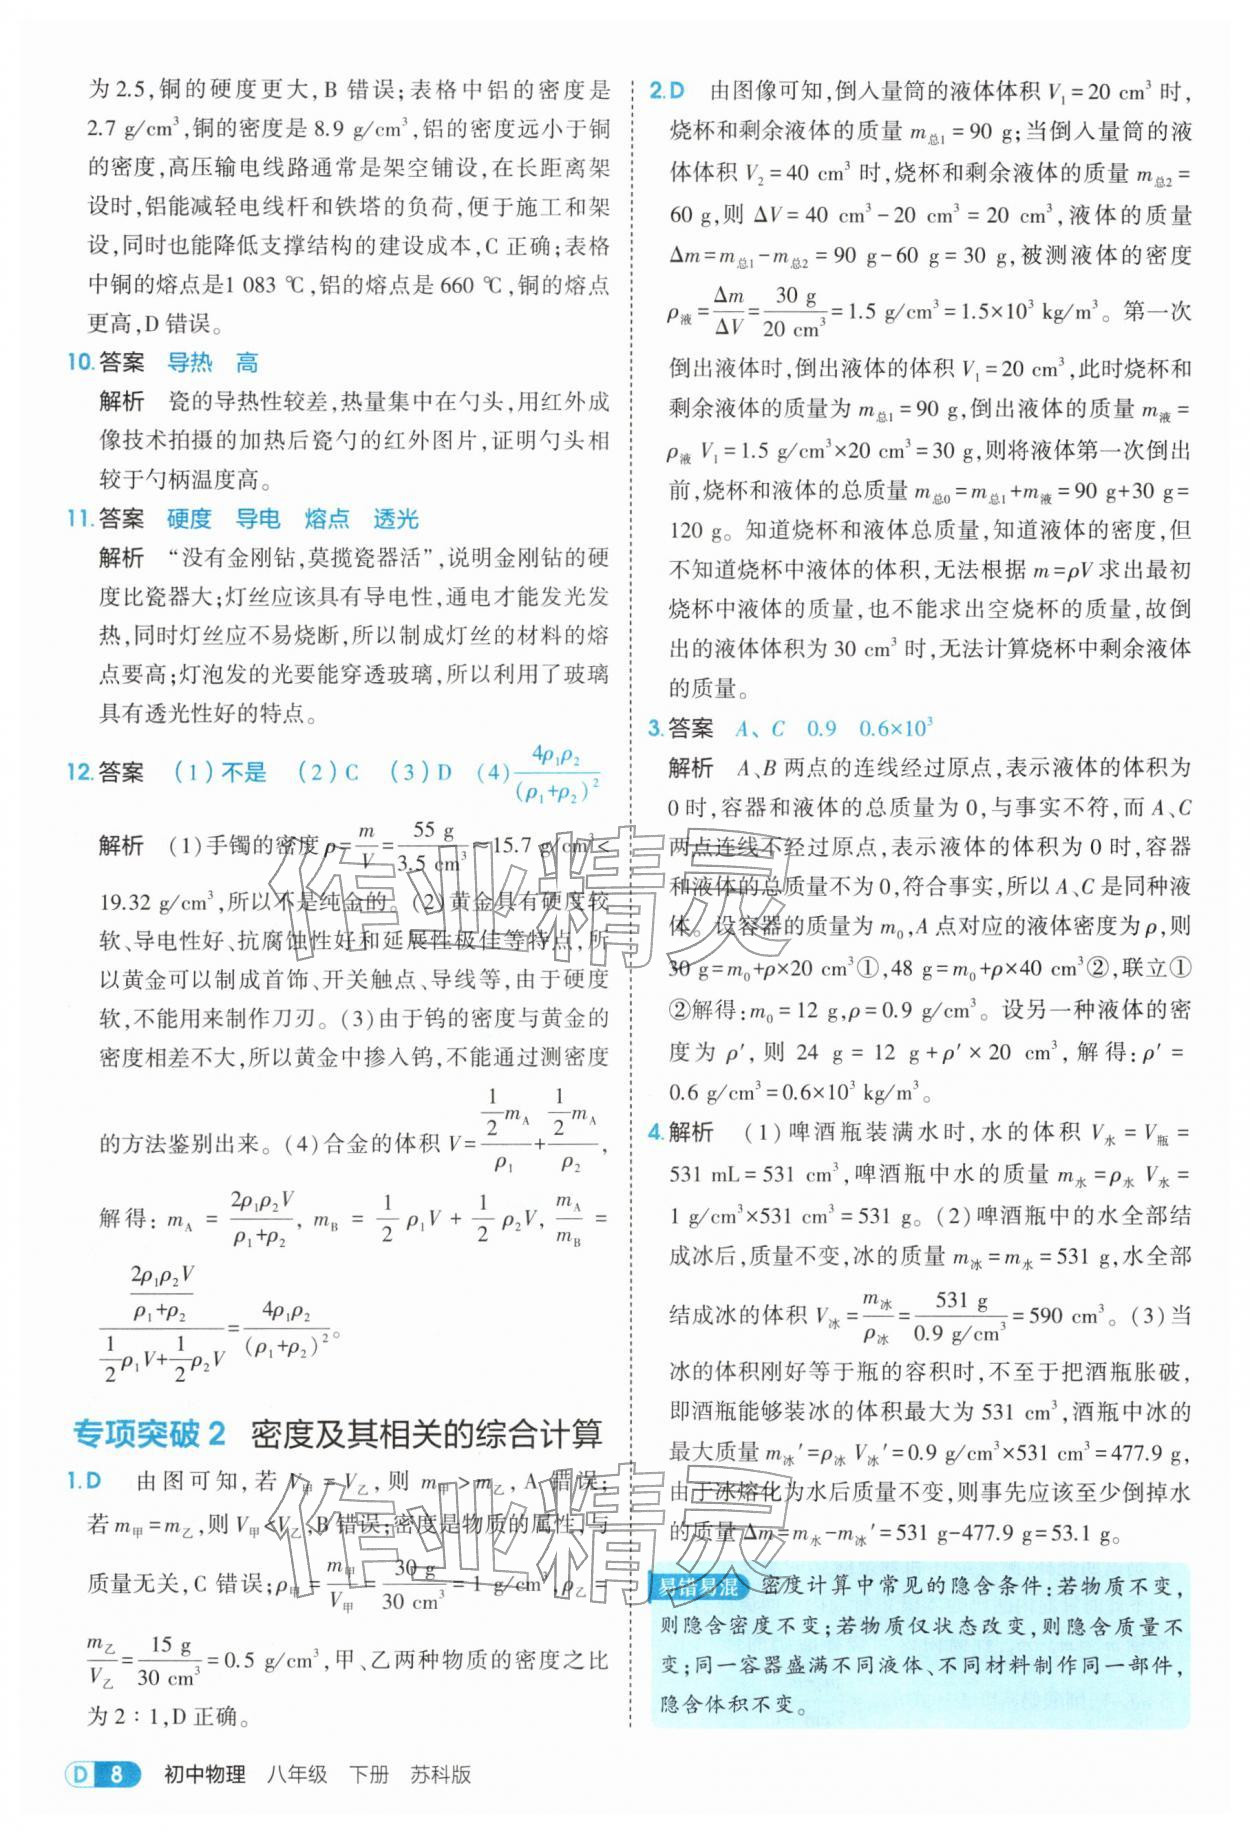 为 2.5,铜的硬度更大,B 错误;表格中铝的密度是
2.7 g/cm³,铜的密度是 8.9 g/cm³,铝的密度远小于铜
的密度,高压输电线路通常是架空铺设,在长距离架
设时,铝能减轻电线杆和铁塔的负荷,便于施工和架
设,同时也能降低支撑结构的建设成本,C 正确;表格
中铜的熔点是1 083 ℃,铝的熔点是 660 ℃,铜的熔点
更高,D 错误。
10. 答案 导热 高
解析 瓷的导热性较差,热量集中在勺头,用红外成
像技术拍摄的加热后瓷勺的红外图片,证明勺头相
较于勺柄温度高。
11. 答案 硬度 导电 熔点 透光
解析 “没有金刚钻,莫揽瓷器活”,说明金刚钻的硬
度比瓷器大;灯丝应该具有导电性,通电才能发光发
热,同时灯丝应不易烧断,所以制成灯丝的材料的熔
点要高;灯泡发的光要能穿透玻璃,所以利用了玻璃
具有透光性好的特点。
12. 答案 (1)不是 (2)C (3)D (4)4ρ₁ρ₂/(ρ₁+ρ₂)²
解析 (1)手镯的密度 ρ=m/V=55 g/3.5 cm³≈15.7 g/cm³<
19.32 g/cm³,所以不是纯金的。(2)黄金具有硬度较
软、导电性好、抗腐蚀性好和延展性极佳等特点,所
以黄金可以制成首饰、开关触点、导线等,由于硬度
软,不能用来制作刀刃。(3)由于钨的密度与黄金的
密度相差不大,所以黄金中掺入钨,不能通过测密度
的方法鉴别出来。(4)合金的体积 V=(1/2)m_A/ρ₁+(1/2)m_A/ρ₂,
解得: m_A = 2ρ₁ρ₂V/(ρ₁+ρ₂), m_B = 1/2 ρ₁V + 1/2 ρ₂V, m_A/m_B =
(2ρ₁ρ₂V/(ρ₁+ρ₂))/(1/2 ρ₁V+1/2 ρ₂V)=4ρ₁ρ₂/(ρ₁+ρ₂)²。
专项突破 2 密度及其相关的综合计算
1. D 由图可知,若 V甲=V乙,则 m甲>m乙,A 错误;
若 m甲=m乙,则 V甲<V乙,B 错误;密度是物质的属性,与
质量无关,C 错误;ρ甲=m甲/V甲=30 g/30 cm³=1 g/cm³,ρ乙=
m乙/V乙=15 g/30 cm³=0.5 g/cm³,甲、乙两种物质的密度之比
为 2∶1,D 正确。
2. D 由图像可知,倒入量筒的液体体积 V₁=20 cm³ 时,
烧杯和剩余液体的质量 m总1=90 g;当倒入量筒的液
体体积 V₂=40 cm³ 时,烧杯和剩余液体的质量 m总2=
60 g,则 ΔV=40 cm³-20 cm³=20 cm³,液体的质量
Δm=m总1-m总2=90 g-60 g=30 g,被测液体的密度
ρ液=Δm/ΔV=30 g/20 cm³=1.5 g/cm³=1.5×10³ kg/m³。第一次
倒出液体时,倒出液体的体积 V₁=20 cm³,此时烧杯和
剩余液体的质量为 m总1=90 g,倒出液体的质量 m液=
ρ液 V₁=1.5 g/cm³×20 cm³=30 g,则将液体第一次倒出
前,烧杯和液体的总质量 m总0=m总1+m液=90 g+30 g=
120 g。知道烧杯和液体总质量,知道液体的密度,但
不知道烧杯中液体的体积,无法根据 m=ρV 求出最初
烧杯中液体的质量,也不能求出空烧杯的质量,故倒
出的液体体积为 30 cm³ 时,无法计算烧杯中剩余液体
的质量。
3. 答案 A、C 0.9 0.6×10³
解析 A、B 两点的连线经过原点,表示液体的体积为
0 时,容器和液体的总质量为 0,与事实不符,而 A、C
两点连线不经过原点,表示液体的体积为 0 时,容器
和液体的总质量不为 0,符合事实,所以 A、C 是同种液
体。设容器的质量为 m₀,A 点对应的液体密度为 ρ,则
30 g=m₀+ρ×20 cm³①,48 g=m₀+ρ×40 cm³②,联立①
②解得:m₀=12 g,ρ=0.9 g/cm³。设另一种液体的密
度为 ρ′,则 24 g=12 g+ρ′×20 cm³,解得:ρ′=
0.6 g/cm³=0.6×10³ kg/m³。
4. 解析 (1)啤酒瓶装满水时,水的体积 V水=V瓶=
531 mL=531 cm³,啤酒瓶中水的质量 m水=ρ水 V水=
1 g/cm³×531 cm³=531 g。(2)啤酒瓶中的水全部结
成冰后,质量不变,冰的质量 m冰=m水=531 g,水全部
结成冰的体积 V冰=m冰/ρ冰=531 g/0.9 g/cm³=590 cm³。(3)当
冰的体积刚好等于瓶的容积时,不至于把酒瓶胀破,
即酒瓶能够装冰的体积最大为 531 cm³,酒瓶中冰的
最大质量 m冰′=ρ冰 V冰′=0.9 g/cm³×531 cm³=477.9 g,
由于冰熔化为水后质量不变,则事先应该至少倒掉水
的质量 Δm=m水-m冰′=531 g-477.9 g=53.1 g。
易错易混 密度计算中常见的隐含条件:若物质不变,
则隐含密度不变;若物质仅状态改变,则隐含质量不
变;同一容器盛满不同液体、不同材料制作同一部件,
隐含体积不变。
作业精灵
作业精灵
D 8 初中物理 八年级 下册 苏科版